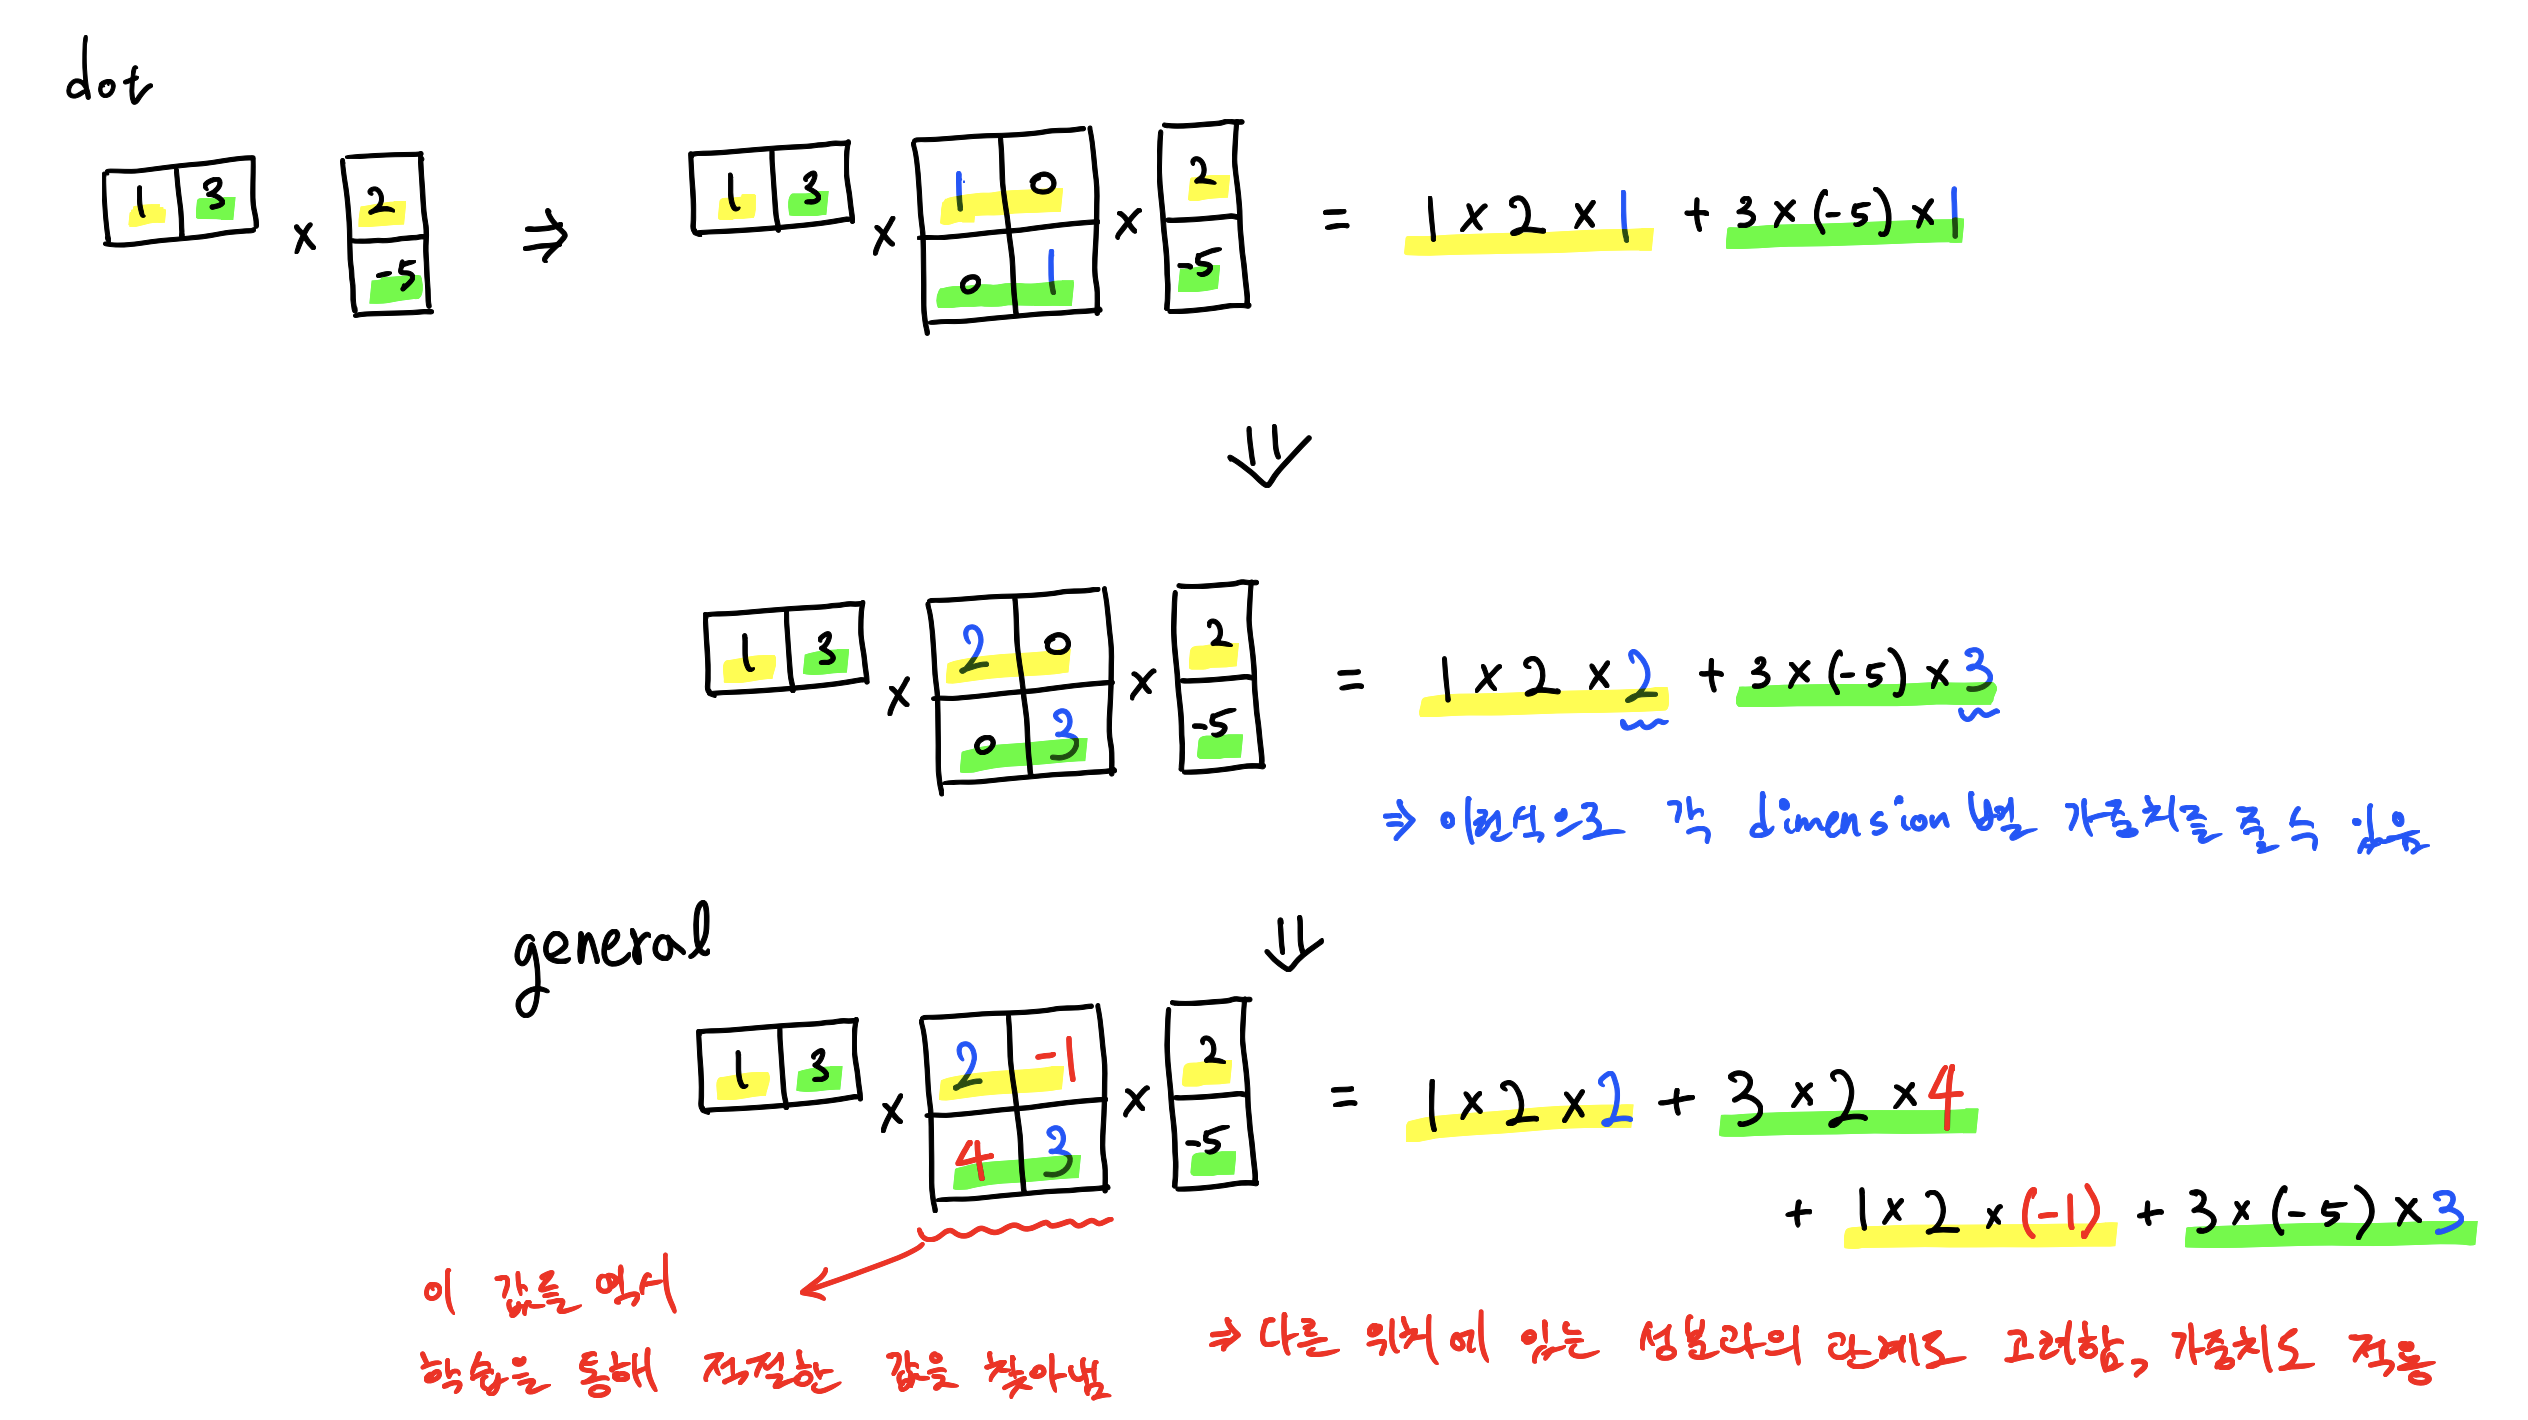 dot
1 3 × 2 -5 ⇒ 1 3 × 1 0 0 1 × 2 -5 = 1 × 2 × 1 + 3 × (-5) × 1
⇓
1 3 × 2 0 0 3 × 2 -5 = 1 × 2 × 2 + 3 × (-5) × 3
⇒ 이런식으로 각 dimension별 가중치를 줄 수 있음
general
⇓
1 3 × 2 -1 4 3 × 2 -5 = 1 × 2 × 2 + 3 × 2 × 4
+ 1 × 2 × (-1) + 3 × (-5) × 3
이 값를 역시
학습을 통해 적절한 값을 찾아냄
⇒ 다른 위치에 있는 성분과의 관계도 고려함, 가중치도 적용